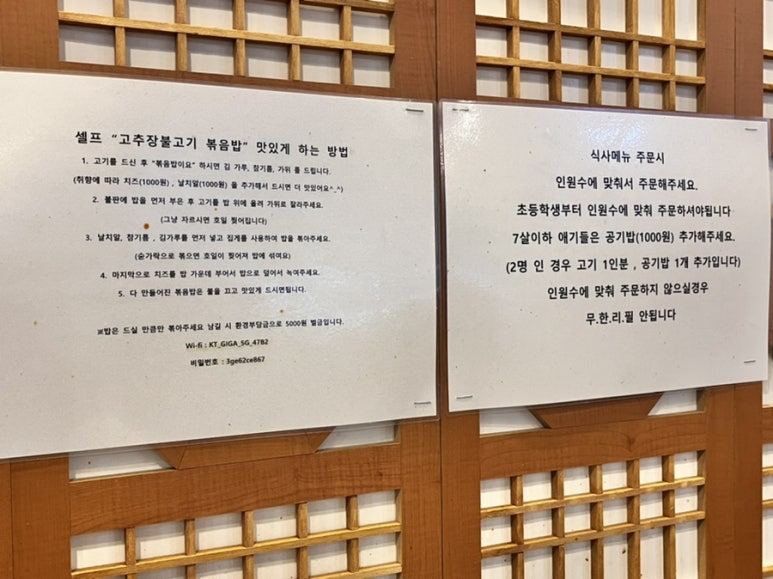 셀프 "고추장불고기 볶음밥" 맛있게 하는 방법
1. 고기를 드신 후 "볶음밥이요" 하시면 김 가루, 참기름, 가위 를 드립니다.
(취향에 따라 치즈(1000원) , 날치알(1000원) 을 추가해서 드시면 더 맛있어요^_^)
2. 불판에 밥을 먼저 부은 후 고기를 밥 위에 올려 가위로 잘라주세요.
(그냥 자르시면 호일 찢어집니다)
3. 날치알, 참기름 , 김가루를 먼저 넣고 집게를 사용하여 밥을 볶아주세요.
(숟가락으로 볶으면 호일이 찢어져 밥에 섞여요)
4. 마지막으로 치즈를 밥 가운데 부어서 밥으로 덮어서 녹여주세요.
5. 다 만들어진 볶음밥은 불을 끄고 맛있게 드시면됩니다.
※밥은 드실 만큼만 볶아주세요 남길 시 환경부담금으로 5000원 벌금입니다.
Wi-fi : KT_GIGA_5G_47B2
비밀번호 : 3ge62ce867
식사메뉴 주문시
인원수에 맞춰서 주문해주세요.
초등학생부터 인원수에 맞춰 주문하셔야됩니다
7살이하 애기들은 공기밥(1000원) 추가해주세요.
(2명 인 경우 고기 1인분 , 공기밥 1개 추가입니다)
인원수에 맞춰 주문하지 않으실경우
무.한.리.필 안됩니다